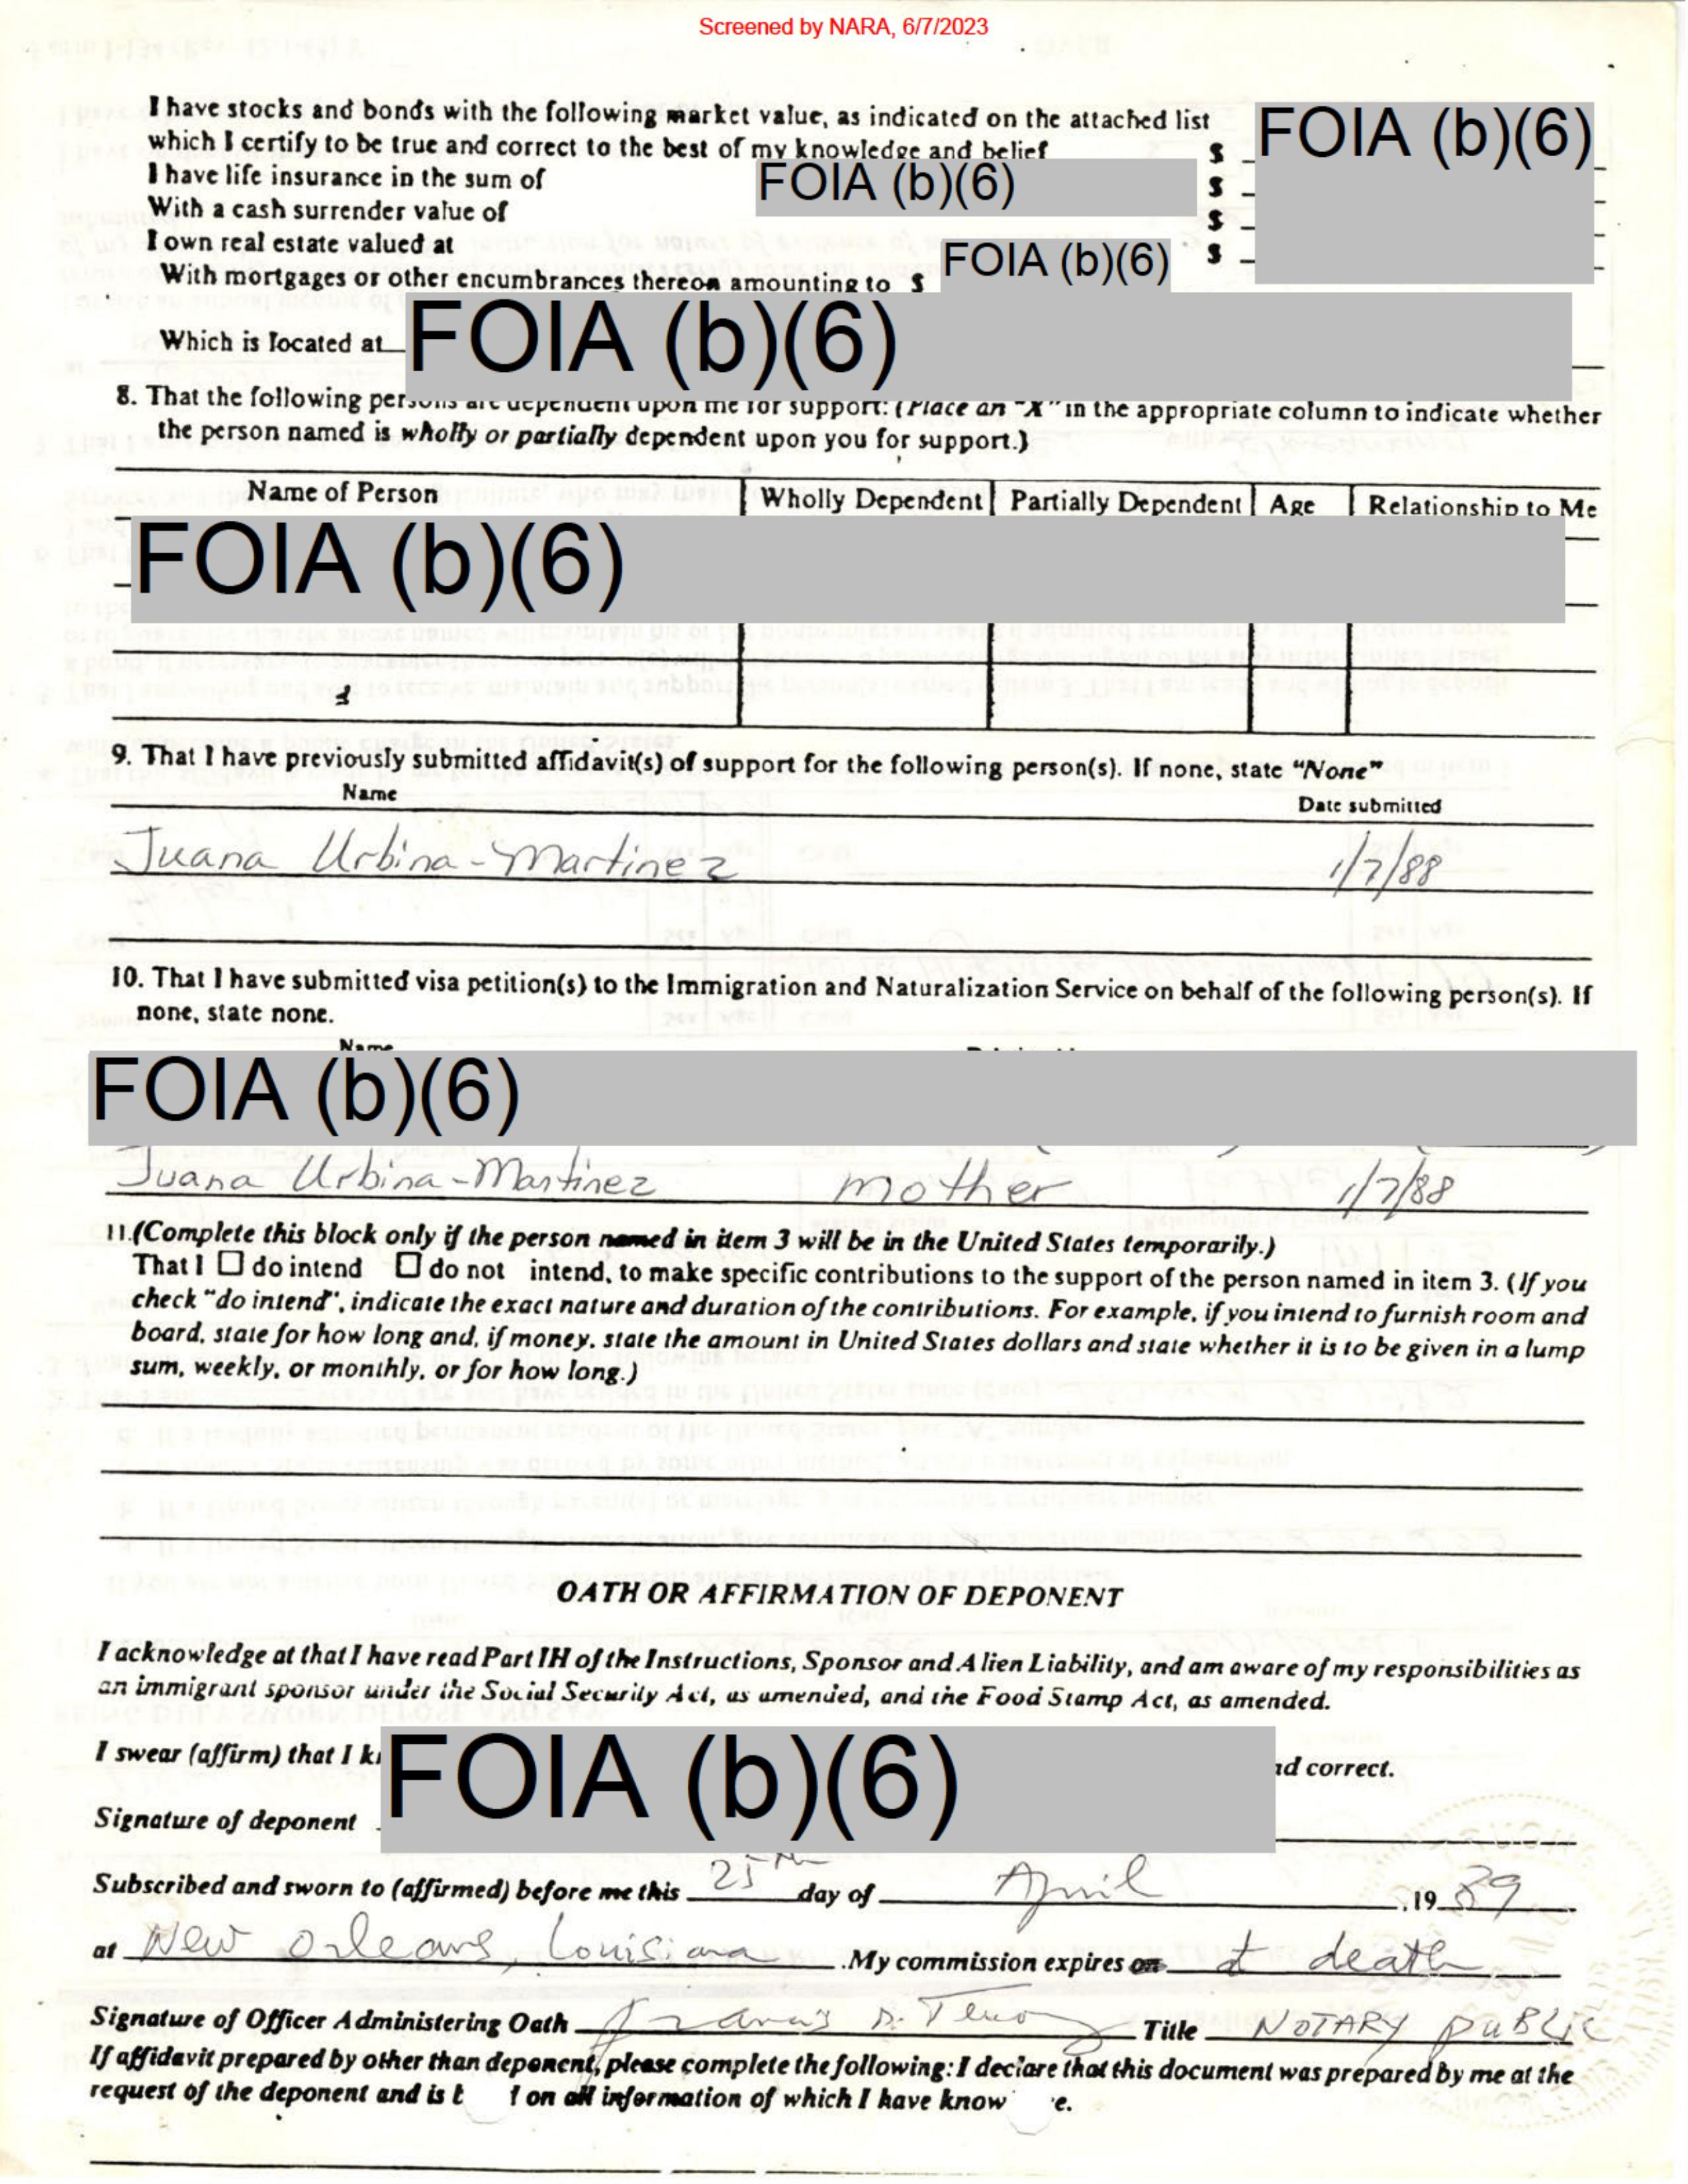 Screened by NARA, 6/7/2023
I have stocks and bonds with the following market value, as indicated on the attached list
which I certify to be true and correct to the best of my knowledge and belief $ FOIA (b)(6)
I have life insurance in the sum of FOIA (b)(6) $
With a cash surrender value of $
I own real estate valued at $
With mortgages or other encumbrances thereon amounting to $ FOIA (b)(6)
Which is located at FOIA (b)(6)
8. That the following persons are dependent upon me for support: (Place an "X" in the appropriate column to indicate whether
the person named is wholly or partially dependent upon you for support.)
Name of Person Wholly Dependent Partially Dependent Age Relationship to Me
FOIA (b)(6)
9. That I have previously submitted affidavit(s) of support for the following person(s). If none, state "None"
Name Date submitted
Juana Urbina-Martinez 1/7/88
10. That I have submitted visa petition(s) to the Immigration and Naturalization Service on behalf of the following person(s). If
none, state none.
Name
FOIA (b)(6)
Juana Urbina-Martinez mother 1/7/88
11.(Complete this block only if the person named in item 3 will be in the United States temporarily.)
That I ☐ do intend ☐ do not intend, to make specific contributions to the support of the person named in item 3. (If you
check "do intend", indicate the exact nature and duration of the contributions. For example, if you intend to furnish room and
board, state for how long and, if money, state the amount in United States dollars and state whether it is to be given in a lump
sum, weekly, or monthly, or for how long.)
OATH OR AFFIRMATION OF DEPONENT
I acknowledge at that I have read Part III of the Instructions, Sponsor and Alien Liability, and am aware of my responsibilities as
an immigrant sponsor under the Social Security Act, as amended, and the Food Stamp Act, as amended.
I swear (affirm) that I FOIA (b)(6) correct.
Signature of deponent
Subscribed and sworn to (affirmed) before me this 25th day of April ,19 89
at New Orleans, Louisiana .My commission expires on at death
Signature of Officer Administering Oath Title NOTARY PUBLIC
If affidavit prepared by other than deponent, please complete the following: I declare that this document was prepared by me at the
request of the deponent and is on all information of which I have